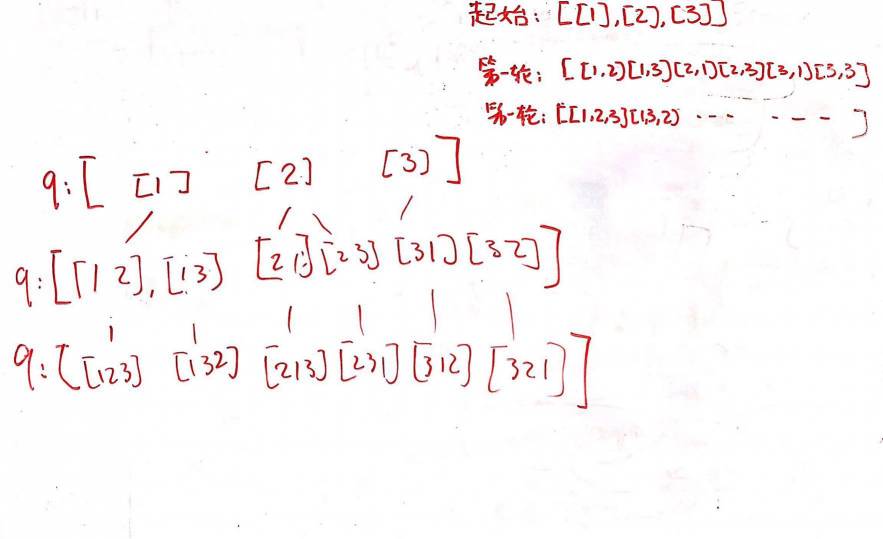 起始: [[1],[2],[3]]
第一轮: [[1,2][1,3][2,1][2,3][3,1][3,3]
第一轮: [[1,2,3][1,3,2) --- --- ]
q:[ [1] [2] [3] ]
q:[[1 2],[1 3] [2 1] [2 3] [3 1] [3 2]]
q:[[123] [132] [213] [231] [312] [321]]